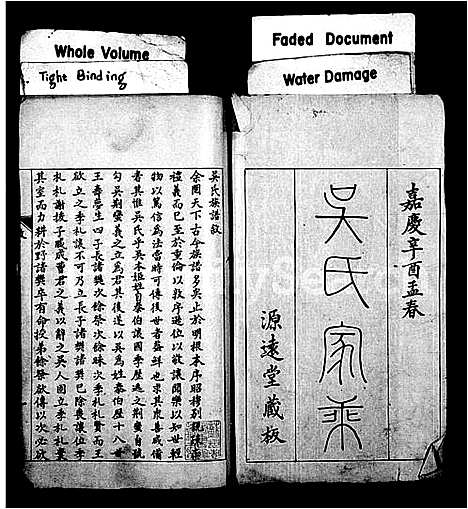 Whole Volume
Tight Binding
Faded Document
Water Damage
嘉慶辛酉孟春
吳氏家乘
源遠堂藏板
吳氏族譜敘
余閱天下古今族譜多矣止於明根本序昭穆別親疎
禮義而已至於重倫以敦序遊位以敬讓聞樂以知世輕
物以篤信為法當時可傳後世者蓋鮮也求其衆善咸備
者其惟吳氏乎吳本姬姓自泰伯讓國季歷逃之荊蠻自號
勾吳荊蠻義之立為君其後遂以吳為姓泰伯歷十八世
王壽夢生四子長諸樊次餘祭次餘昧次季札札賢而王
欲立之季札讓不可乃立長子諸樊諸樊已除喪讓位季
札札謝援子臧成曹君之義以辭之吳人固立季札札棄
其室而力耕於野諸樊卒有命授弟餘祭欲傳以次必欲